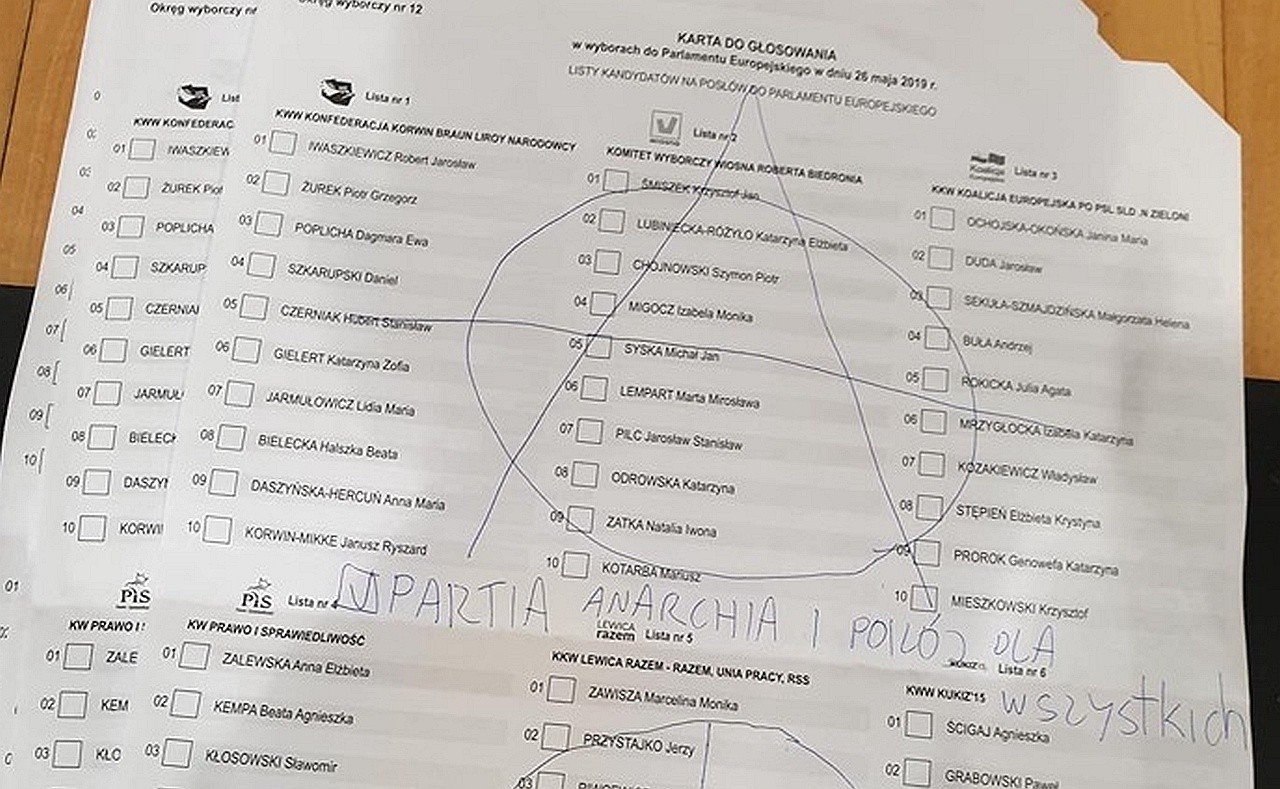 Okręg wyborczy nr
Okręg wyborczy nr 12
KARTA DO GŁOSOWANIA
w wyborach do Parlamentu Europejskiego w dniu 26 maja 2019 r.
LISTY KANDYDATÓW NA POSŁÓW DO PARLAMENTU EUROPEJSKIEGO
List
KWW KONFEDERAC
01 IWASZKIEW
02 ŻUREK Piot
03 POPLICHA
04 SZKARUP
05 CZERNIAI
06 GIELERT
07 JARMUŁ
08 BIELECK
09 DASZYŃ
10 KORWI
Lista nr 1
KWW KONFEDERACJA KORWIN BRAUN LIROY NARODOWCY
01 IWASZKIEWICZ Robert Jarosław
02 ŻUREK Piotr Grzegorz
03 POPLICHA Dagmara Ewa
04 SZKARUPSKI Daniel
05 CZERNIAK Hubert Stanisław
06 GIELERT Katarzyna Zofia
07 JARMUŁOWICZ Lidia Maria
08 BIELECKA Halszka Beata
09 DASZYŃSKA-HERCUŃ Anna Maria
10 KORWIN-MIKKE Janusz Ryszard
Lista nr 2
KOMITET WYBORCZY WIOSNA ROBERTA BIEDRONIA
01 ŚMISZEK Krzysztof Jan
02 LUBINIECKA-RÓŻYŁO Katarzyna Elżbieta
03 CHOJNOWSKI Szymon Piotr
04 MIGOCZ Izabela Monika
05 SYSKA Michał Jan
06 LEMPART Marta Mirosława
07 PILC Jarosław Stanisław
08 ODROWSKA Katarzyna
09 ZATKA Natalia Iwona
10 KOTARBA Mariusz
Koalicja Europejska
Lista nr 3
KKW KOALICJA EUROPEJSKA PO PSL SLD .N ZIELONI
01 OCHOJSKA-OKOŃSKA Janina Maria
02 DUDA Jarosław
03 SEKUŁA-SZMAJDZIŃSKA Małgorzata Helena
04 BUŁA Andrzej
05 ROKICKA Julia Agata
06 MRZYGŁOCKA Izabela Katarzyna
07 KOZAKIEWICZ Władysław
08 STĘPIEŃ Elżbieta Krystyna
09 PROROK Genowefa Katarzyna
10 MIESZKOWSKI Krzysztof
PARTIA ANARCHIA I POKÓJ DLA
WSZYSTKICH
PiS
KW PRAWO I
01 ZALE
02 KEM
03 KŁO
PiS
Lista nr 4
KW PRAWO I SPRAWIEDLIWOŚĆ
01 ZALEWSKA Anna Elżbieta
02 KEMPA Beata Agnieszka
03 KŁOSOWSKI Sławomir
LEWICA
razem
Lista nr 5
KKW LEWICA RAZEM - RAZEM, UNIA PRACY, RSS
01 ZAWISZA Marcelina Monika
02 PRZYSTAJKO Jerzy
03
KUKIZ15
Lista nr 6
KWW KUKIZ'15
01 ŚCIGAJ Agnieszka
02 GRABOWSKI Paweł